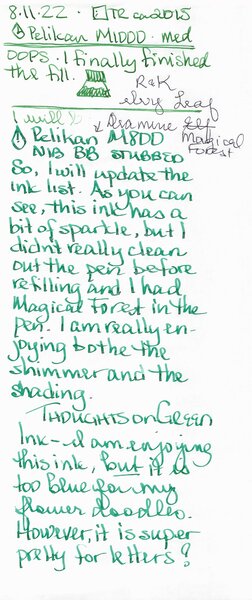 8.11.22 · TR
Pelikan M1000 · med
OOPS. I finally finished
the fill.
R&K
Leaf
I will
Diamine Magical
Forest
Pelikan M800
NIB BB STUBBED
So, I will update the
ink list. As you can
see, this ink has a
bit of sparkle, but I
didn't really clean
out the pen before
refilling and I had
Magical Forest in the
pen. I am really en-
joying bothe the
shimmer and the
shading.
THOUGHTS on Green
Ink - I am enjoying
this ink, but it is
too blue for my
flower doodles.
However, it is super
pretty for letters!